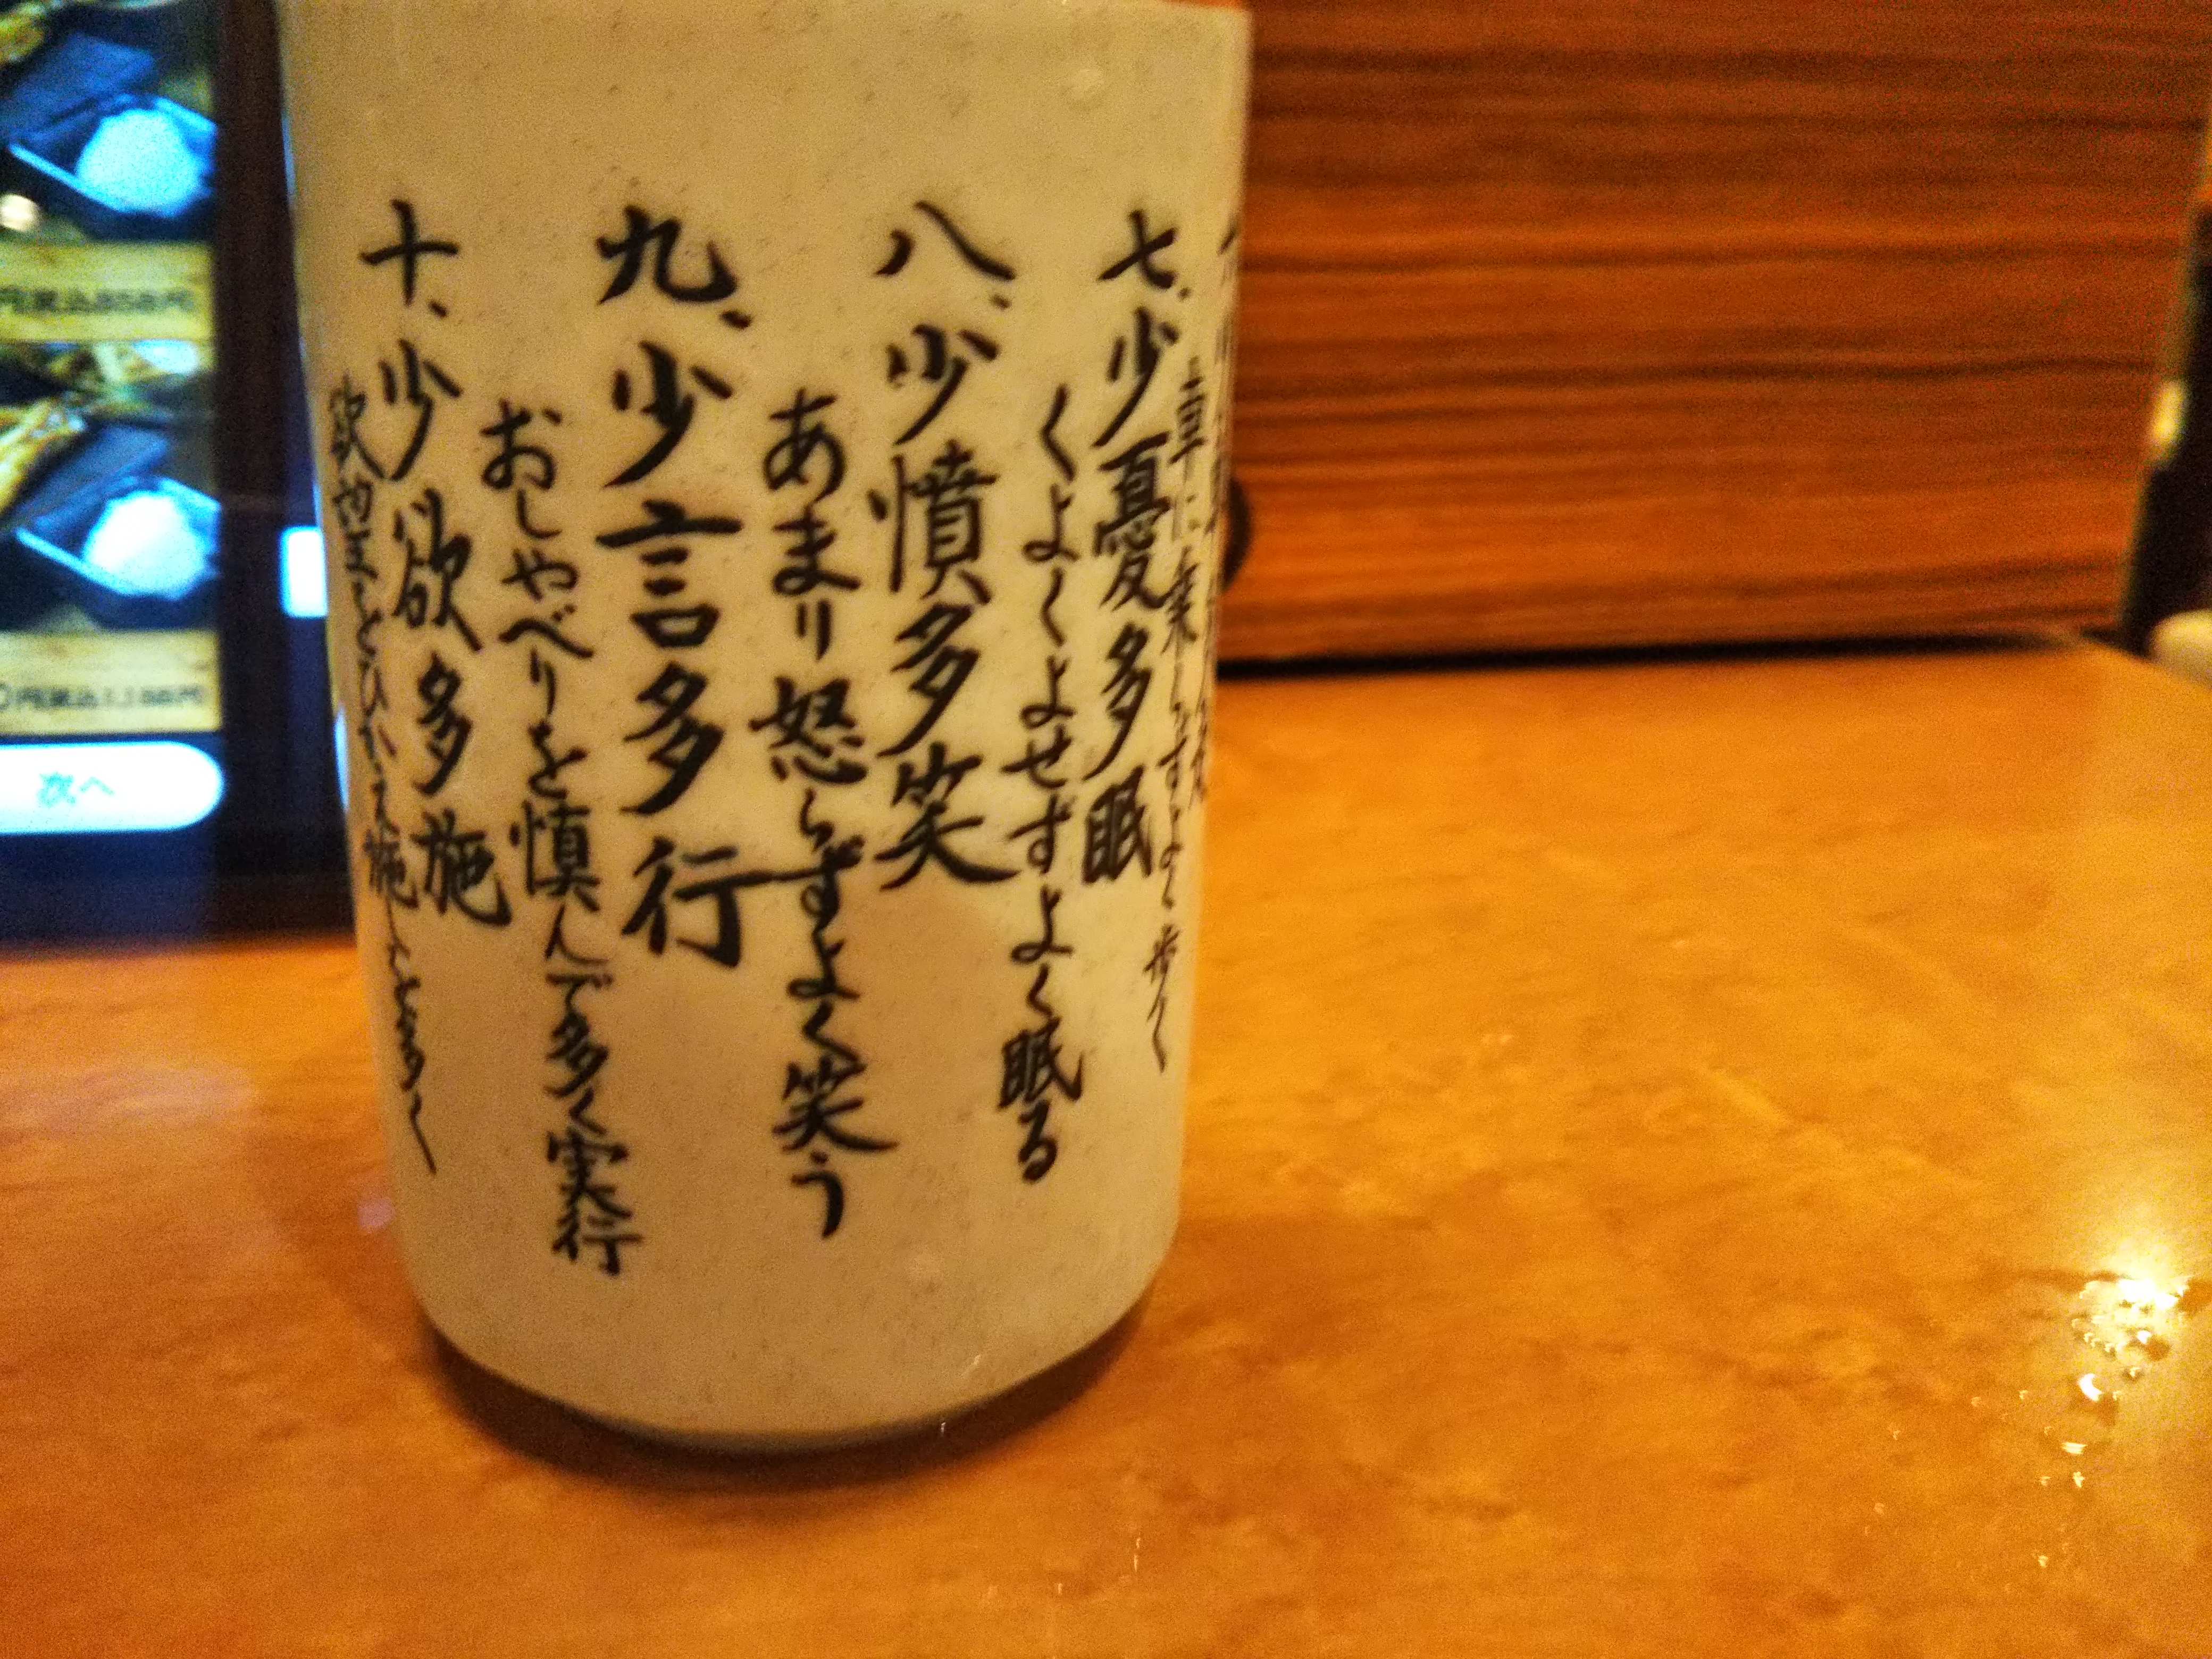 車に乗らずよく歩く
七、少憂多眠
くよくよせずよく眠る
八、少憤多笑
あまり怒らずよく笑う
九、少言多行
おしゃべりを慎んで多く実行
十、少欲多施
次へ